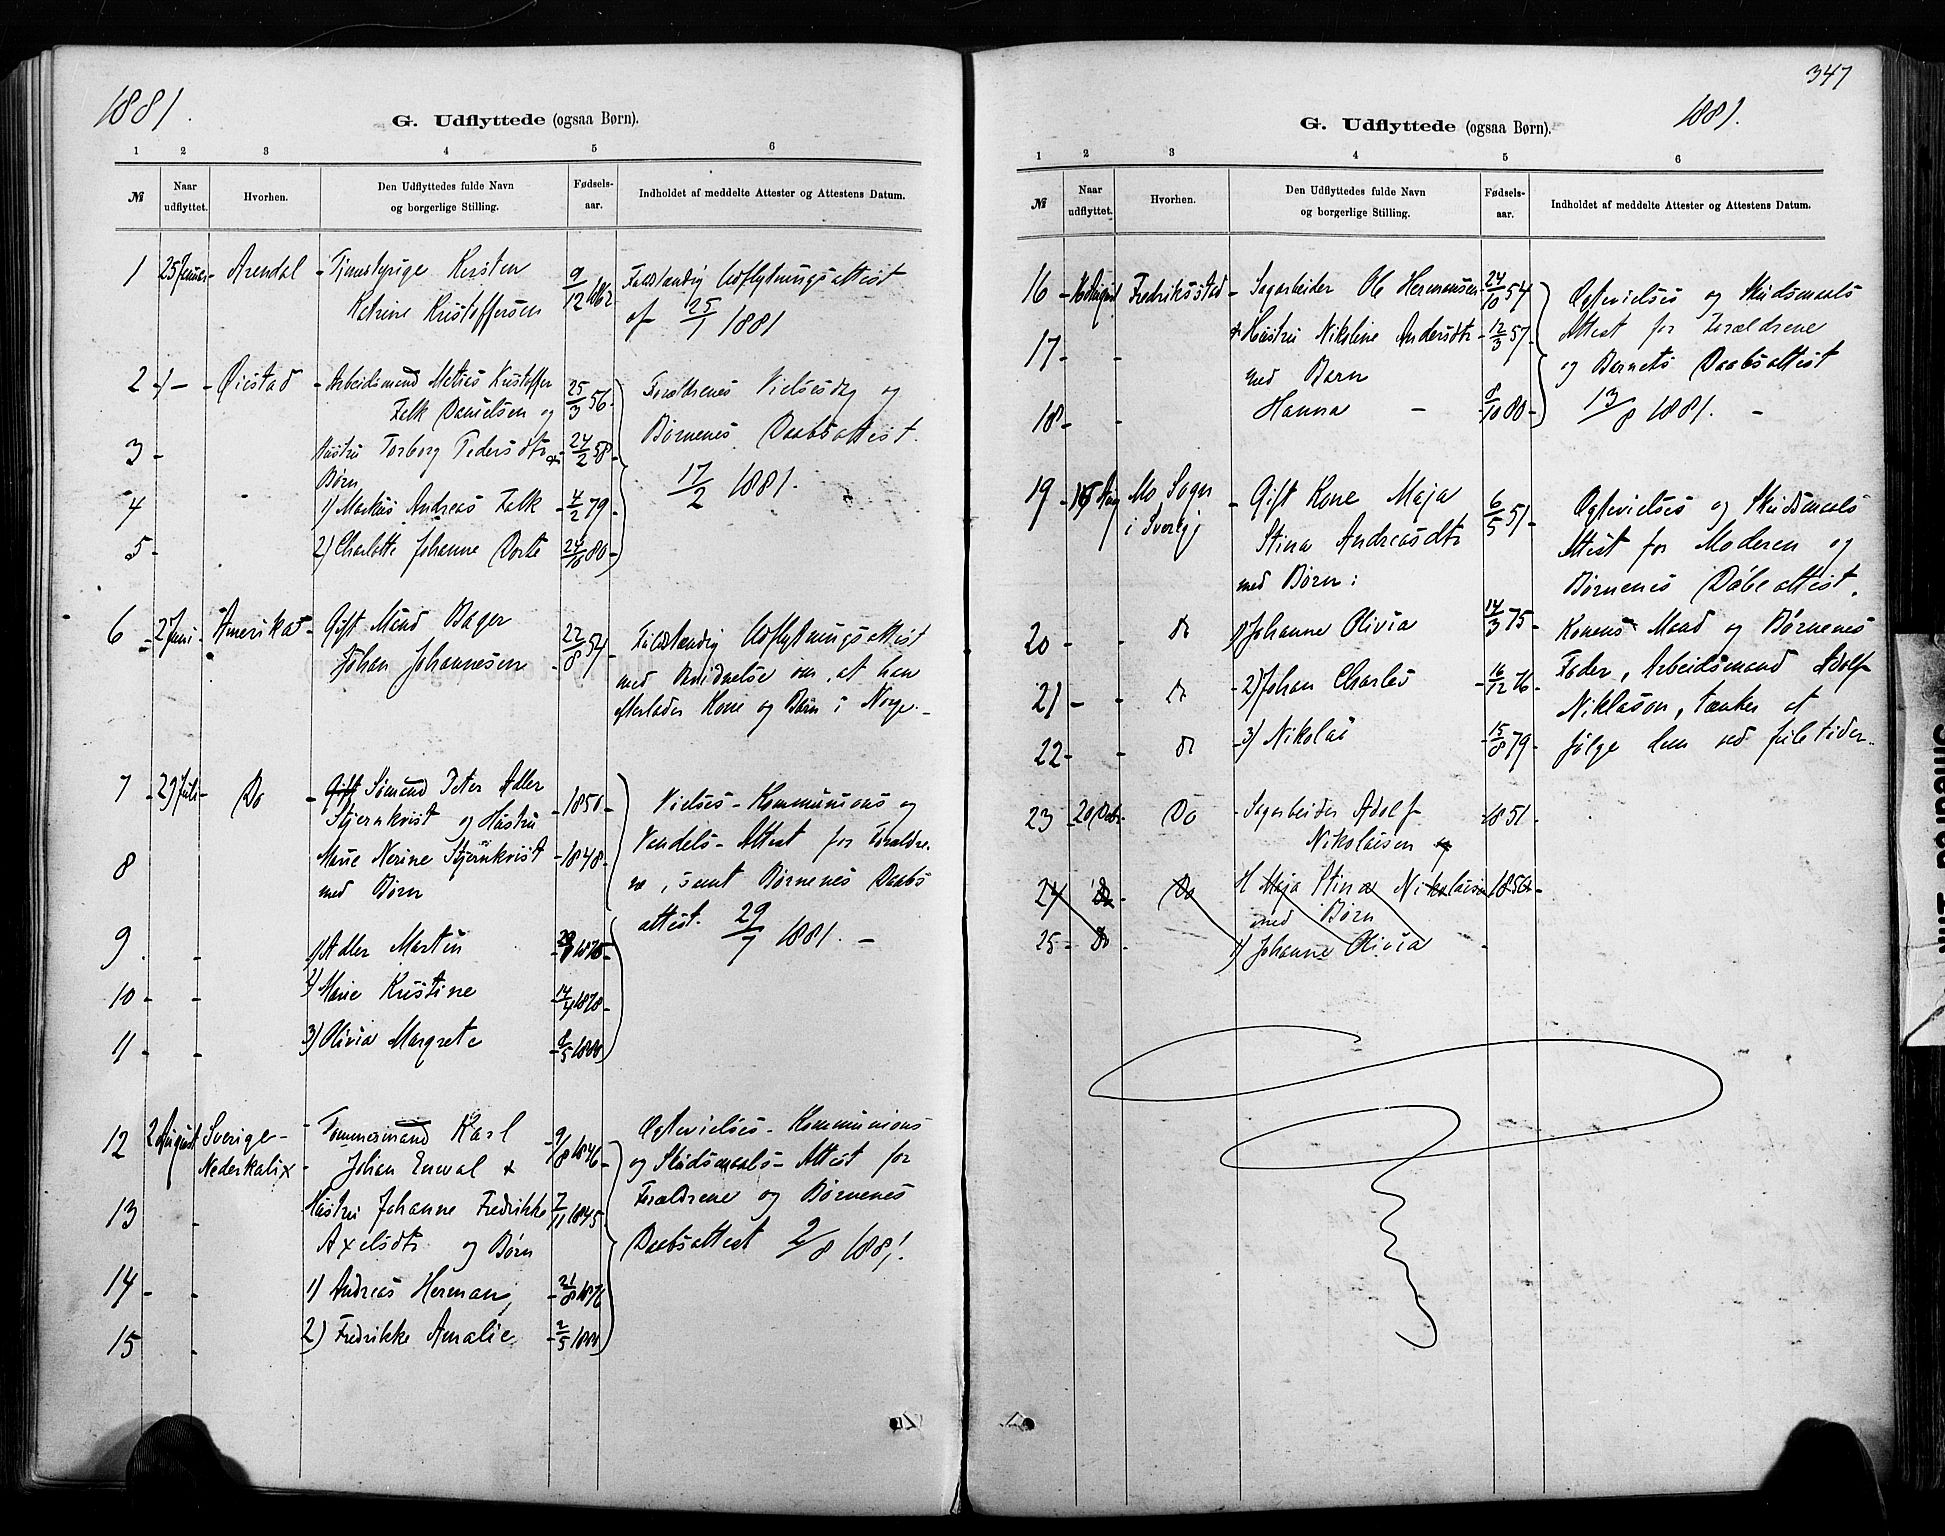 1881.
G. Udflyttede (ogsaa Børn).
1 2 3 4 5 6
№ Naar udflyttet. Hvorhen. Den Udflyttedes fulde Navn og borgerlige Stilling. Fødsels-aar. Indholdet af meddelte Attester og Attestens Datum.
1 25 Januar - Arendal - Tjenstepige Kirsten 9/12 1862 Fuldstændig Udflytningsattest
Katrine Kristoffersen af 25/1 1881
2 - Øiestad - Arbeidsmand Kristoffer 25/3 56 Forældrenes Vielsesdag og
Falk Danielsen og
3 - Hustru Torborg Pedersdtr & 24/2 58 Børnenes Daabsattest.
Børn 17/2 1881.
4 1) Markus Andreas Falk 4/2 79
5 - 2) Charlotte Johanne Dorte 80
6 - 2 Juni - Amerika - Gift Mand Bager 22/8 54 Fuldstændig Udflytningsattest
Johan Johannesen med Bevidnelse om, at han
efterlader Kone og Børn i Norge -
7 - 29 Juli - Do - Gift Sømand Peter Adler - 1850 - Vielses - Kommunions og
Stjernkvist og Hustru
8 Marie Nerine Stjernkvist - 1848 - Vandels - Attest for Forældre-
med Børn ne, samt Børnenes Daabs
attest. 29/7 1881. -
9 - 1) Adler Martin
10 - - 2) Marie Kristine 1878 -
11 - - 3) Olivia Margrete 1880
12 2 August Sverige - Tømmermand Karl 9/8 1846 - Ægtevielses - Kommunions
Nederkalix - Johan Enwal & og Skudsmaals - Attest for
13 - Hustru Johanne Fredrikke 7/11 1845 Forældrene og Børnenes
Axelsdtr og Børn Daabsattest 2/8 1881.
14 - - 1) Andreas Herman, 21/8 1876
15 - 2) Fredrikke Amalie 2/5 1880
347
1881.
G. Udflyttede (ogsaa Børn).
1 2 3 4 5 6
№ Naar udflyttet. Hvorhen. Den Udflyttedes fulde Navn og borgerlige Stilling. Fødsels-aar. Indholdet af meddelte Attester og Attestens Datum.
16 - August Fredriksstad - Sagarbeider Ole Hermansen 24/10 54 Ægtevielses og Skudsmaals
17 - - & Hustru Nikoline Andersdtr 12/3 57 - Attest for Forældrene
med Barn og Barnets Daabsattest
18 - - Hanna - 8/10 80 - 13/8 1881. -
19 - Aug Mo Sogn - Gift Kone Maja 6/5 51 - Ægtevielses og Skudsmaals
i Sverig Stina Andreasdtr Attest for Moderen og
med Børn: Børnenes Døbeattest.
20 - - do 1) Johanne Olivia 14/3 75 - Konens Mand og Børnenes
21 - - do - 2) Johan Charles - 16/12 76 - Fader, Arbeidsmand Adolf
Niklason, tænker at
22 - - do - 3) Nikolai - 15/8 79 - følge dem ved juletider.
23 - 20 - Do - Sagarbeider Adolf 1851 -
Nikolaisen og
24 Do Do Maja Stina Nikolaisen 1850 -
med Børn
25 - Do - 1) Johanne Olivia -